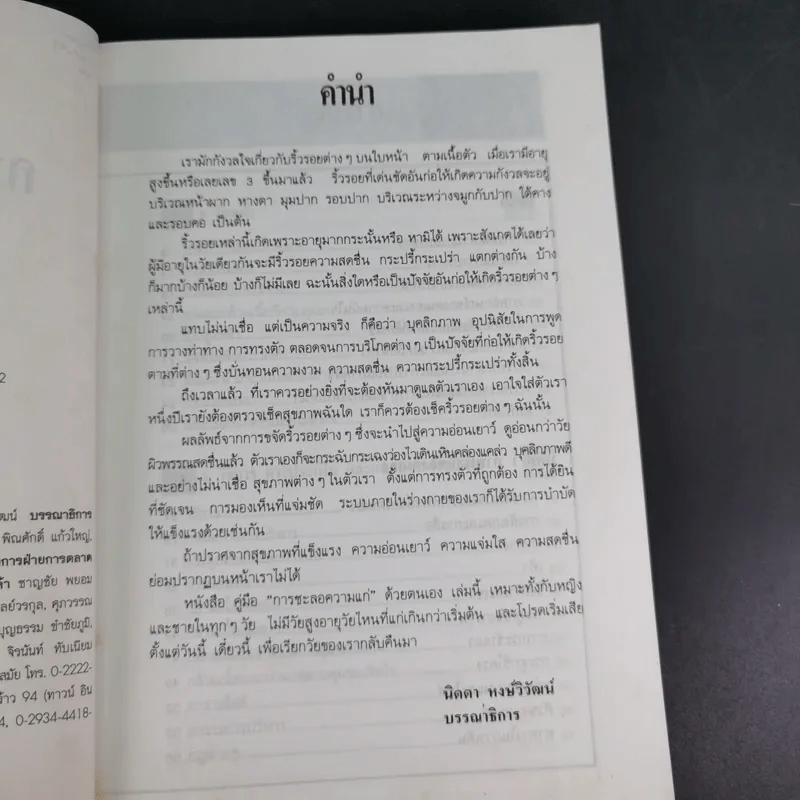 2
ฒน์ บรรณาธิการ
พิณศักดิ์ แก้วใหญ่,
การฝ่ายการตลาด
ชาญชัย พยอม
ลย์วรกุล, ศุภวรรณ
บุญธรรม ขำชัยภูมิ,
จิรนันท์ ทับเนียม
สมัย โทร. 0-2222-
ร้าว 94 (ทาวน์ อิน
4, 0-2934-4418-
คำนำ
เรามักกังวลใจเกี่ยวกับริ้วรอยต่างๆ บนใบหน้า ตามเนื้อตัว เมื่อเรามีอายุ
สูงขึ้นหรือเลยเลข 3 ขึ้นมาแล้ว ริ้วรอยที่เด่นชัดอันก่อให้เกิดความกังวลจะอยู่
บริเวณหน้าผาก หางตา มุมปาก รอบปาก บริเวณระหว่างจมูกกับปาก ใต้คาง
และรอบคอ เป็นต้น
ริ้วรอยเหล่านี้เกิดเพราะอายุมากกระนั้นหรือ หามิได้ เพราะสังเกตได้เลยว่า
ผู้มีอายุในวัยเดียวกันจะมีริ้วรอยความสดชื่น กระปรี้กระเปร่า แตกต่างกัน บ้าง
ก็มากบ้างก็น้อย บ้างก็ไม่มีเลย ฉะนั้นสิ่งใดหรือเป็นปัจจัยอันก่อให้เกิดริ้วรอยต่างๆ
เหล่านี้
แทบไม่น่าเชื่อ แต่เป็นความจริง ก็คือว่า บุคลิกภาพ อุปนิสัยในการพูด
การวางท่าทาง การทรงตัว ตลอดจนการบริโภคต่างๆ เป็นปัจจัยที่ก่อให้เกิดริ้วรอย
ตามที่ต่างๆ ซึ่งบั่นทอนความงาม ความสดชื่น ความกระปรี้กระเปร่าทั้งสิ้น
ถึงเวลาแล้ว ที่เราควรอย่างยิ่งที่จะต้องหันมาดูแลตัวเราเอง เอาใจใส่ตัวเรา
หนึ่งปีเรายังต้องตรวจเช็คสุขภาพฉันใด เราก็ควรต้องเช็คริ้วรอยต่างๆ ฉันนั้น
ผลลัพธ์จากการขจัดริ้วรอยต่างๆ ซึ่งจะนำไปสู่ความอ่อนเยาว์ ดูอ่อนกว่าวัย
ผิวพรรณสดชื่นแล้ว ตัวเราเองก็จะกระฉับกระเฉงว่องไวเดินเหินคล่องแคล่ว บุคลิกภาพดี
และอย่างไม่น่าเชื่อ สุขภาพต่างๆ ในตัวเรา ตั้งแต่การทรงตัวที่ถูกต้อง การได้ยิน
ที่ชัดเจน การมองเห็นที่แจ่มชัด ระบบภายในร่างกายของเราก็ได้รับการบำบัด
ให้แข็งแรงด้วยเช่นกัน
ถ้าปราศจากสุขภาพที่แข็งแรง ความอ่อนเยาว์ ความแจ่มใส ความสดชื่น
ย่อมปรากฏบนหน้าเราไม่ได้
หนังสือ คู่มือ "การชะลอความแก่" ด้วยตนเอง เล่มนี้ เหมาะทั้งกับหญิง
และชายในทุกๆ วัย ไม่มีวัยสูงอายุวัยไหนที่แก่เกินกว่าเริ่มต้น และโปรดเริ่มเสีย
ตั้งแต่วันนี้ เดี๋ยวนี้ เพื่อเรียกวัยของเรากลับคืนมา
นิดดา หงษ์วิวัฒน์
บรรณาธิการ